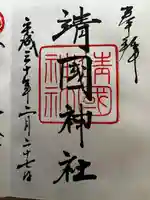 奉拝
靖國神社
靖國神社
平成三十年二月二十七日